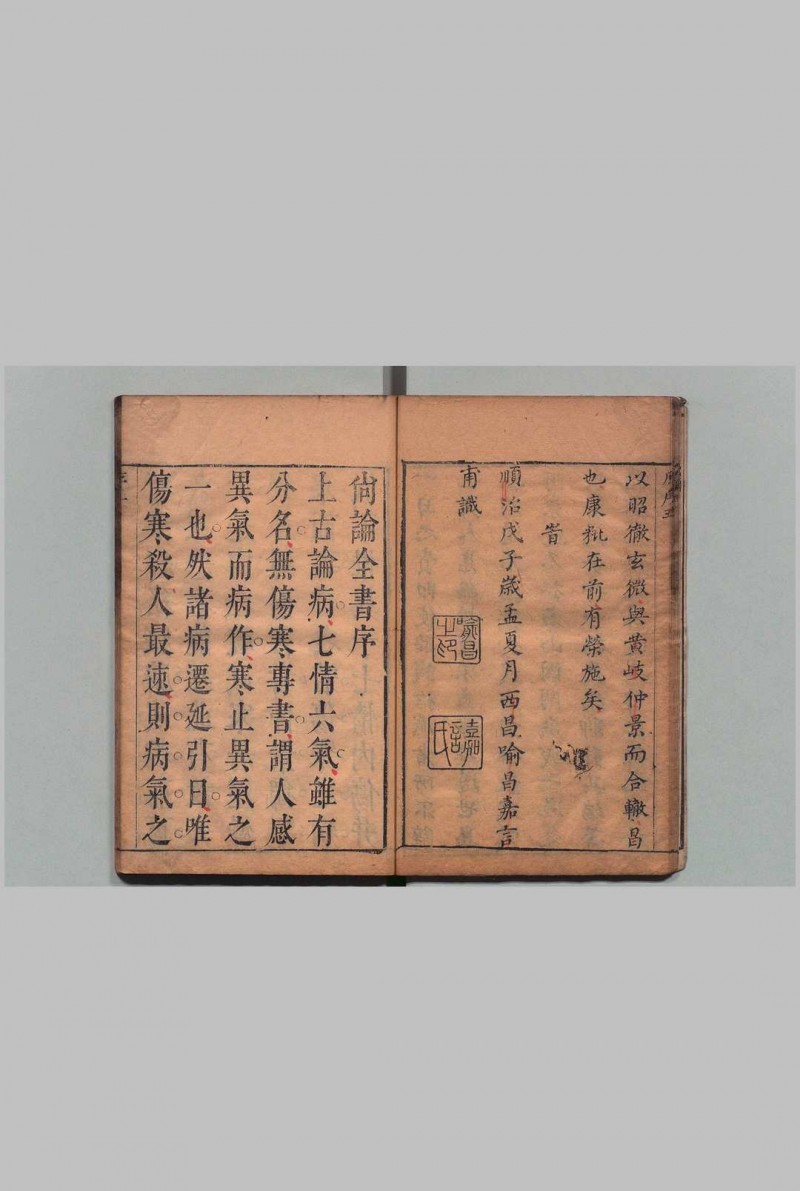 以昭徹玄微與黄岐仲景而合轍昌
也康粃在前有榮施矣
旹
順治戊子歳孟夏月西昌喻昌嘉言
甫識
喻昌之印
嘉言氏
尙論全書序
上古論病七情六氣雖有
分名無傷寒專書謂人感
異氣而病作寒止異氣之
一也然諸病遷延引日唯
傷寒殺人最速則病氣之